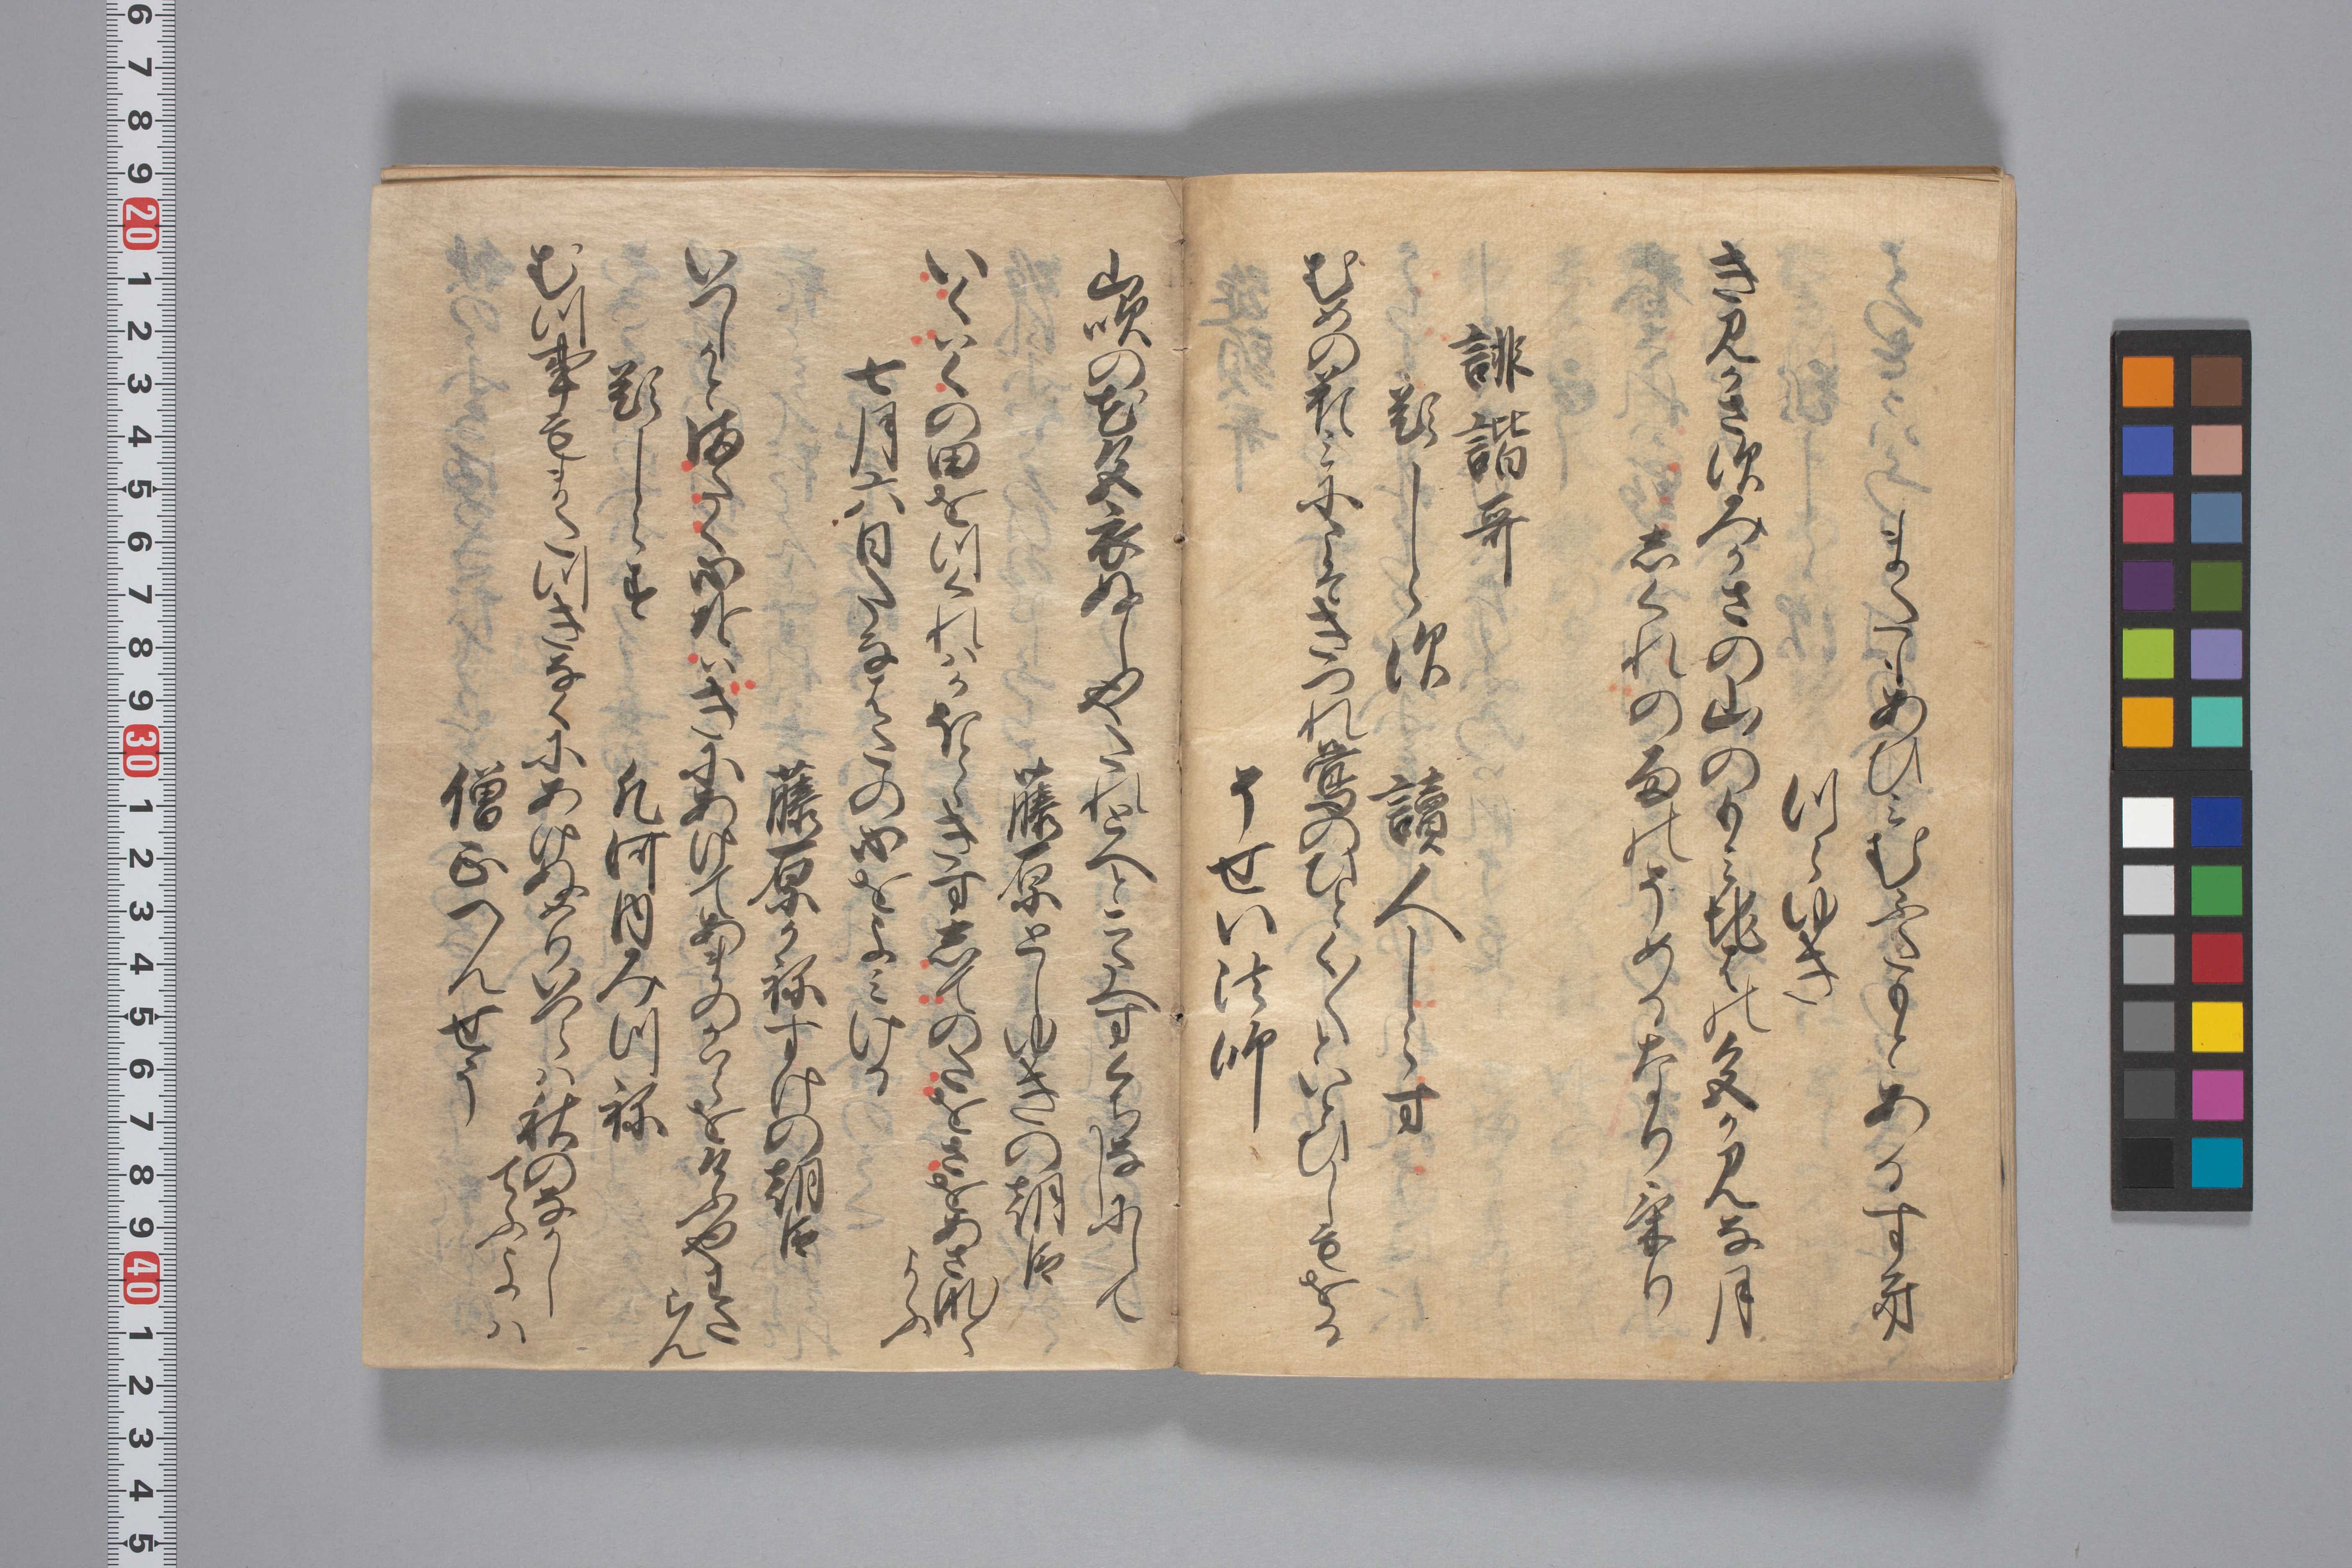 またもあひみむふたもとあるすき
つらゆき
きみかさすみかさの山のもみちはの色かみな月
しくれの雨のそめるなりけり
誹諧哥
題しらす　讀人しらす
むめの花みにこそきつれ鶯のひとく〱といとひしもをる
そせい法師
山吹の花色衣ぬしやたれとへとこたへすくちなしにして
藤原としゆきの朝臣
いくはくの田をつくれはかほとゝきすしてのたをさをあさな〱
よふ
七月六日たなはたの心をよみける
藤原かねすけの朝臣
いつしかとまたく心をはきにあけてあまのかはらをけふやわた
らん
題しらす
凡河内みつね
むつ事もまたつきなくにあけぬめりいつらは秋のなかし
てふよは
僧正へんせう